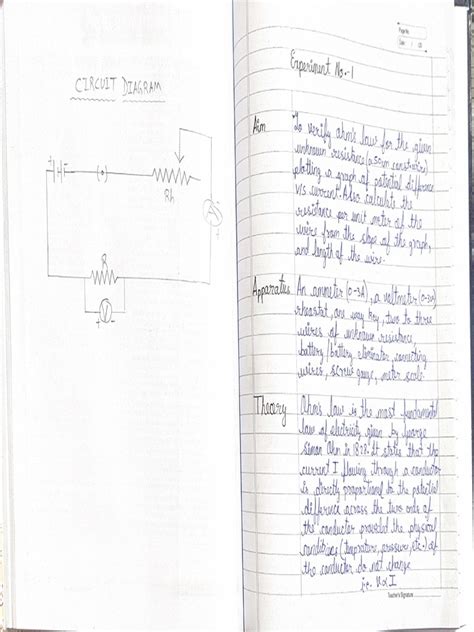 CIRCUIT DIAGRAM
+
-
(•)
Rh
A
R
+ V -
Page No.
Date
Experiment No.-1
Aim
To verify ohm's law for the given
unknown resistance (a 50cm constantan wire)
plotting a graph of potential difference
v/s current. Also calculate the
resistance per unit meter of the
wire from the slope of the graph,
and length of the wire.
Apparatus
An ammeter (0-3A), a voltmeter
rheostat, one way key, two to three
wires of unknown resistance,
battery/battery eliminator, connecting
wires, screw gauge, meter scale.
Theory
Ohm's law is the most fundamental
law of electricity given by George
Simon Ohm in 1828. It states that the
current I flowing through a conductor
is directly proportional to the potential
difference across the two ends of
the conductor provided the physical
conditions (temprature, pressure, etc.) of
the conductor do not change
i.e. V∝I
Teacher's Signature